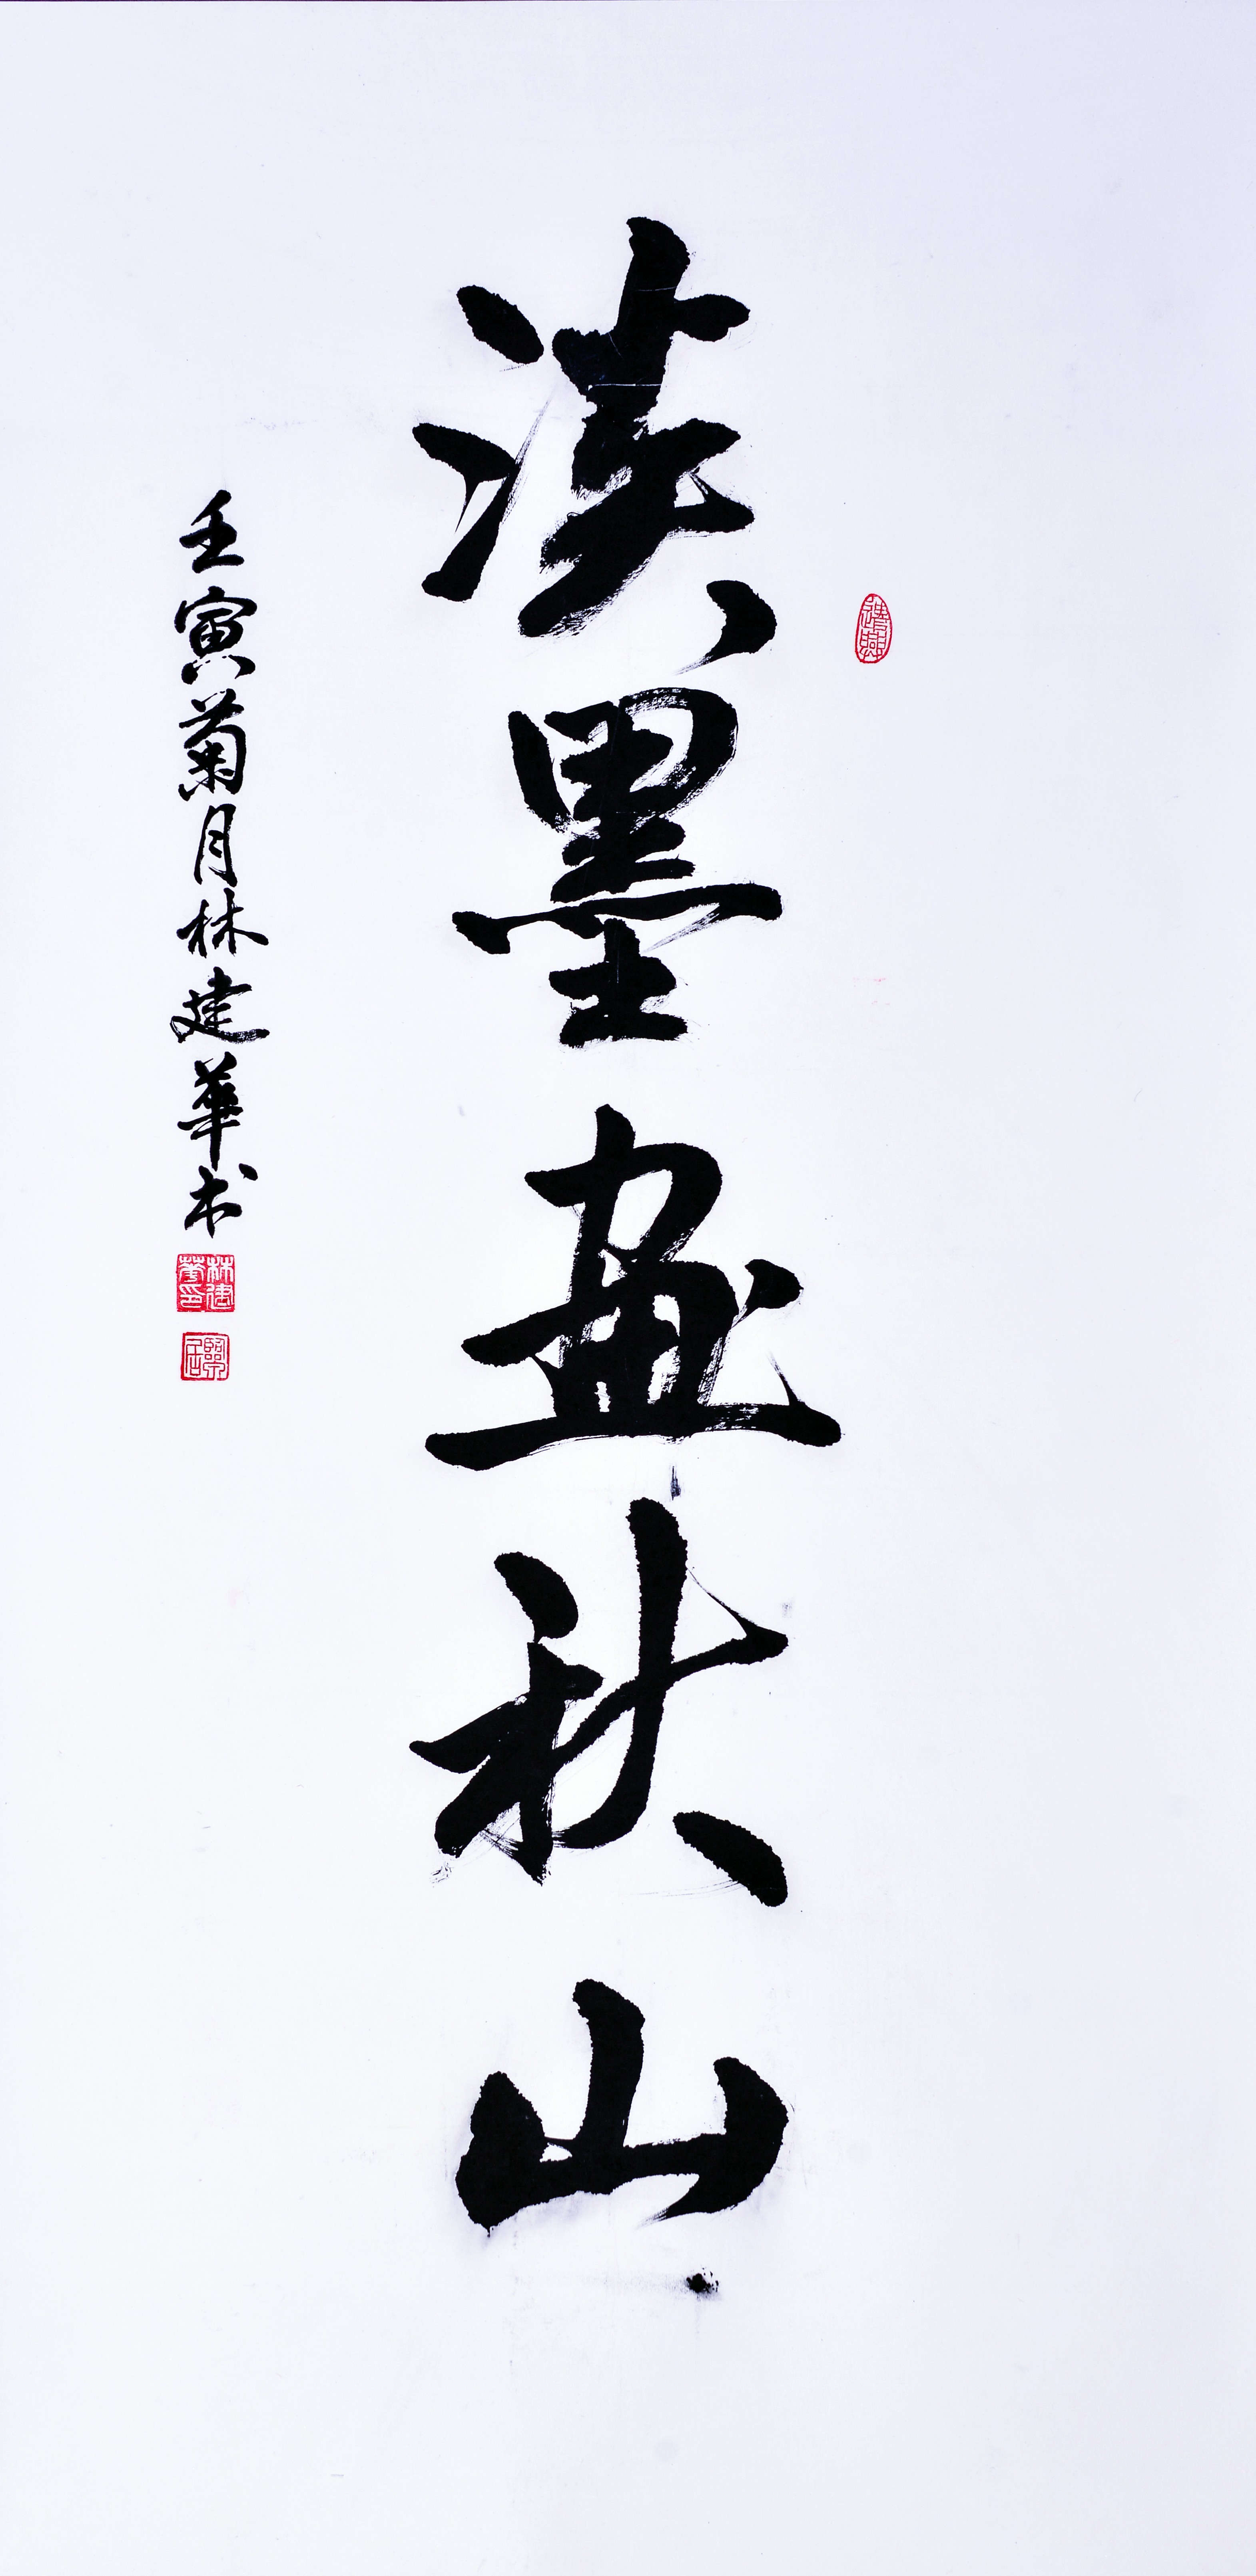 淡墨画秋山
壬寅菊月林建華书
林建華印